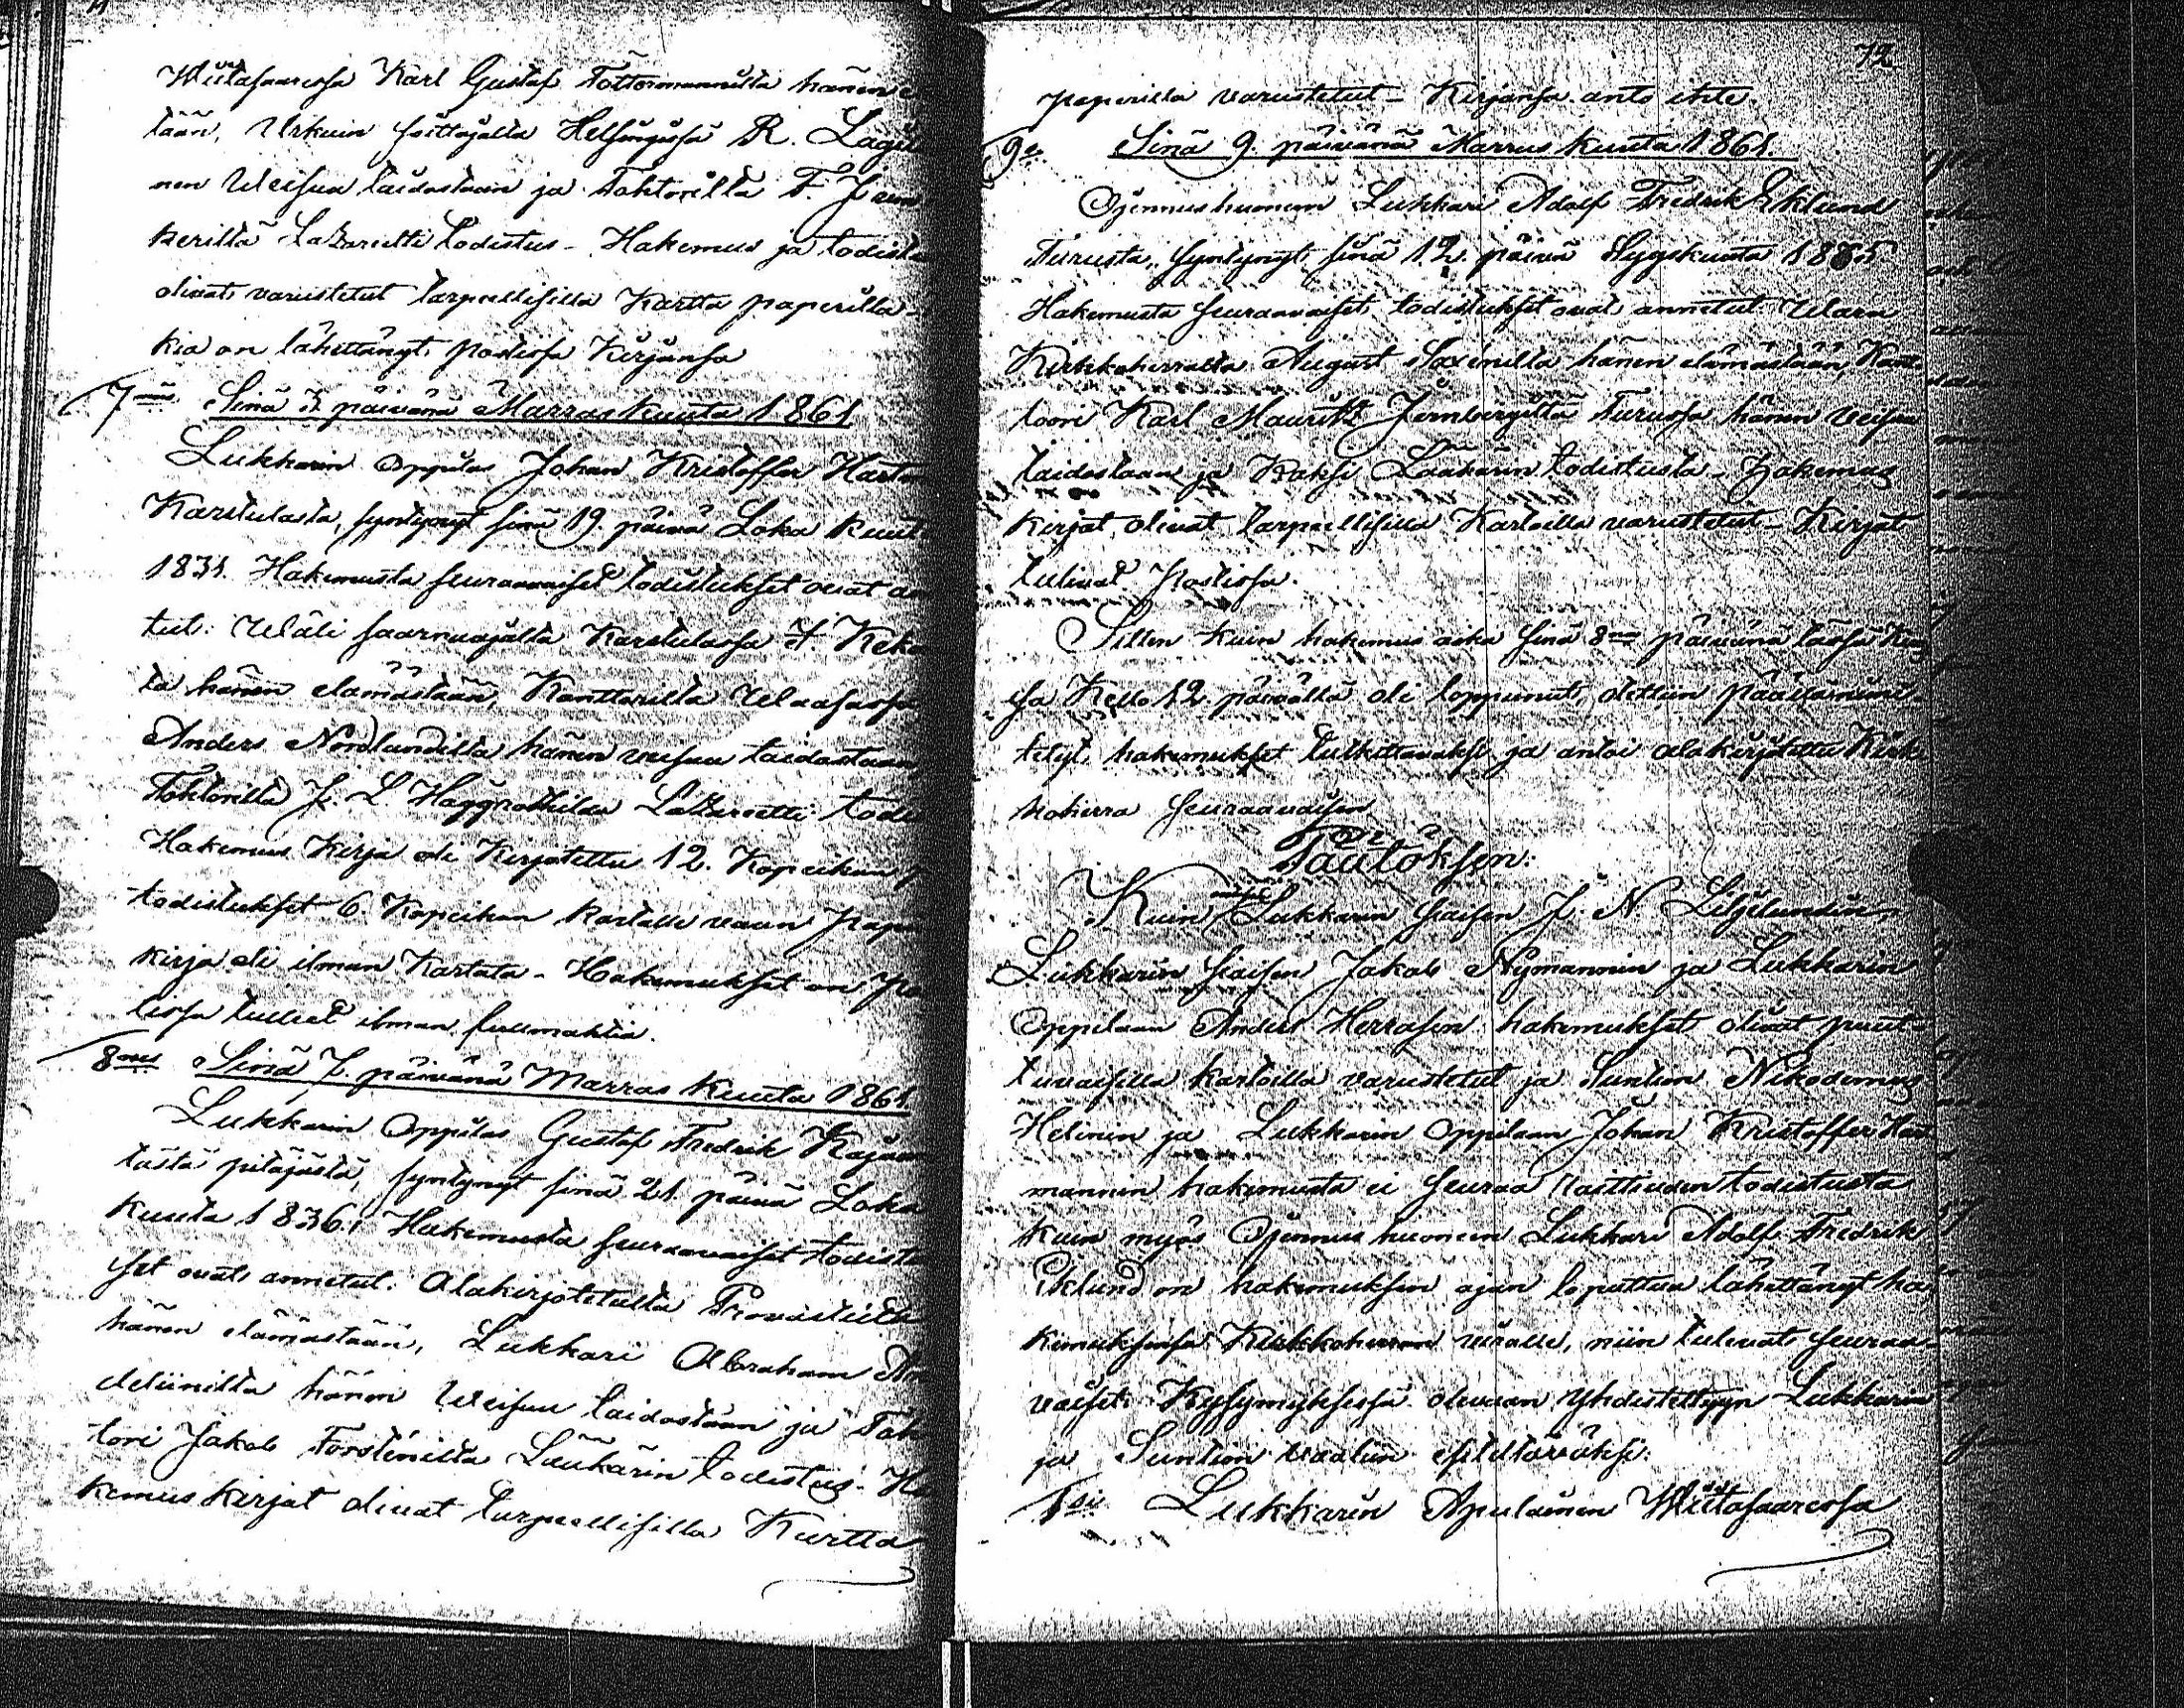 Wiitasaaressa Karl Gustaf Töttermannilta hänen e
tään, Urkuin soittajalta Helsingissä R. Lagi
nen Weisuu taidostaan ja Tohtorilta F. J
kerilta Lazaretti todistus - Hakemus ja todistu
olivat varustetut tarpeellisilla Kartta paperilla -
kia on lähettänyt postissa Kirjansa
7mäs Sinä 7. päivänä Marraskuuta 1861.
Lukkarin Oppilas Johan Kristoffer Hart
Karstulasta, syntynyt sinä 19. päivä Loka kuut
1831. Hakemusta seuraavaiset todistukset ovat an
tut: Wäli saarnaajalta Karstulassa A. Keko
ta hänen elämästään, Kanttorilta Waasassa
Anders Nordlundilta hänen veisuu taidostaan,
Tohtorilta J. L. Häggrothilda Lazaretti todi
Hakemus Kirja oli Kirjotettu 12. Kopeikan p
todistukset 6. Kopeikan kartalle vaan Pap
kirja oli ilman Kartata - Hakemukset on po
tissa tulleet ilman fullmahtia.
8sas Sinä 7. päivänä Marras kuuta 1861.
Lukkarin Oppilas Gustaf Fredrik Kajaan
tästä pitäjästä, syntynyt sinä 21. päivä Loka
kuuta 1836. Hakemusta seuraavaiset todistu
set ovat annetut: Alakirjotetulta Provastilta
hänen elämästään, Lukkari Abraham
deliinilta hänen Weisuu taidostaan ja Toh
tori Jakob Forstenilta Lääkärin todistus - Ha
kemus kirjat olivat tarpeellisilla Kartta
72
paperilla varustetut - Kirjansa anto itse.
9s. Sinä 9. päivänä Marras kuuta 1861.
Ojennushuoneen Lukkari Adolf Fredrik Eklund
Turusta, syntynyt sinä 12. päivä Syyskuuta 1835
Hakemusta seuraavaiset todistukset ovat annetut: Waran
Kirkkoherralta August hänen elämästään, Kant
toori Karl Mauritz Jernbergiltä Turussa hänen veisuu
taidostaan ja Kaksi Lääkärin todistusta - Hakemus
kirjat olivat tarpeellisilla Kartoilla varustetut - Kirjat
tulivat Postissa.
Sitten kuin hakemus aika sinä 8na päivänä tässä Kuu
sa Kello 12 päivällä oli loppunut, otettiin
tetyt hakemukset tutkittavaksi ja antoi alakirjotettu Kirk
koherra seuraavaisen
Päätöksen:
Kuin Lukkarin siaisen J. N. Liljelundin,
Lukkarin siaisen Jakob Nymannin ja Lukkarin
Oppilaan Anders Herrasen hakemukset olivat puut-
tuvaisilla kartoilla varustetut ja Suntion Nikodemus
Helinin ja Lukkarin Oppilaan Johan Kristoffer Hart
mannin hakemusta ei seuraa Raittiuden todistusta
kuin myös Ojennus huoneen Lukkari Adolf Fredrik
Eklund on hakemuksen ajan loputtua lähettänyt ha
kemuksensa Kirkkoherran viralle, niin tulevat seuraa-
vaiset Kysymyksessä olevaan Yhdistettyyn Lukkarin
ja Suntion vaaliin esitettäväksi:
1si Lukkarin Apulainen Wiitasaaressa